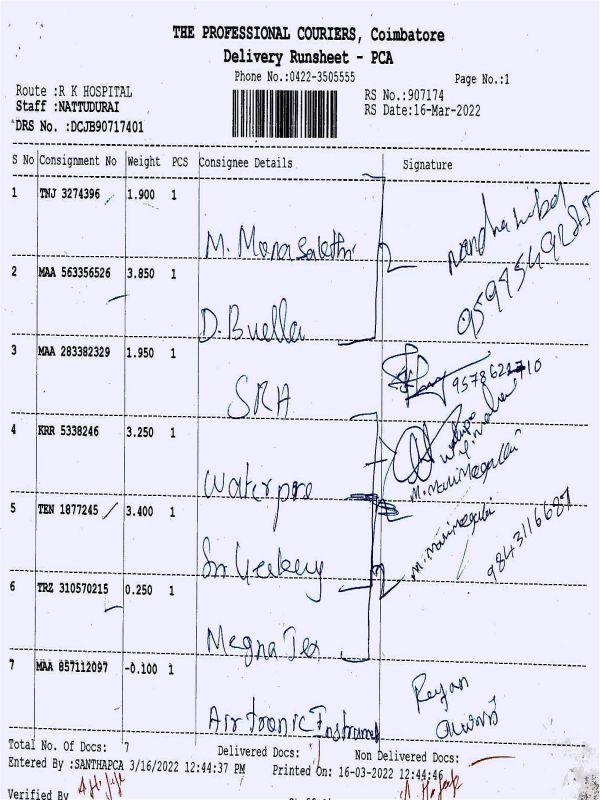 THE PROFESSIONAL COURIERS, Coimbatore
Delivery Runsheet - PCA
Phone No.:0422-3505555
Page No.:1
Route :R K HOSPITAL
RS No.:907174
Staff :NATTUDURAI
RS Date:16-Mar-2022
DRS No. :DCJB90717401
S No Consignment No Weight PCS Consignee Details Signature
1 TNJ 3274396 1.900 1
M. Mona
2 MAA 563356526 3.850 1
D. Buella
3 MAA 283382329 1.950 1
SRA
4 KRR 5338246 3.250 1
M. Manimegalai
Waterpre
5 TEN 1877245 3.400 1
M. Manimegalai
9843116687
Sri
6 TRZ 310570215 0.250 1
Megna Tex
7 MAA 857112097 -0.100 1
Reyan
Airtronic Instrument
Total No. Of Docs: 7 Delivered Docs: Non Delivered Docs:
Entered By :SANTHAPCA 3/16/2022 12:44:37 PM Printed On: 16-03-2022 12:44:46
Verified By